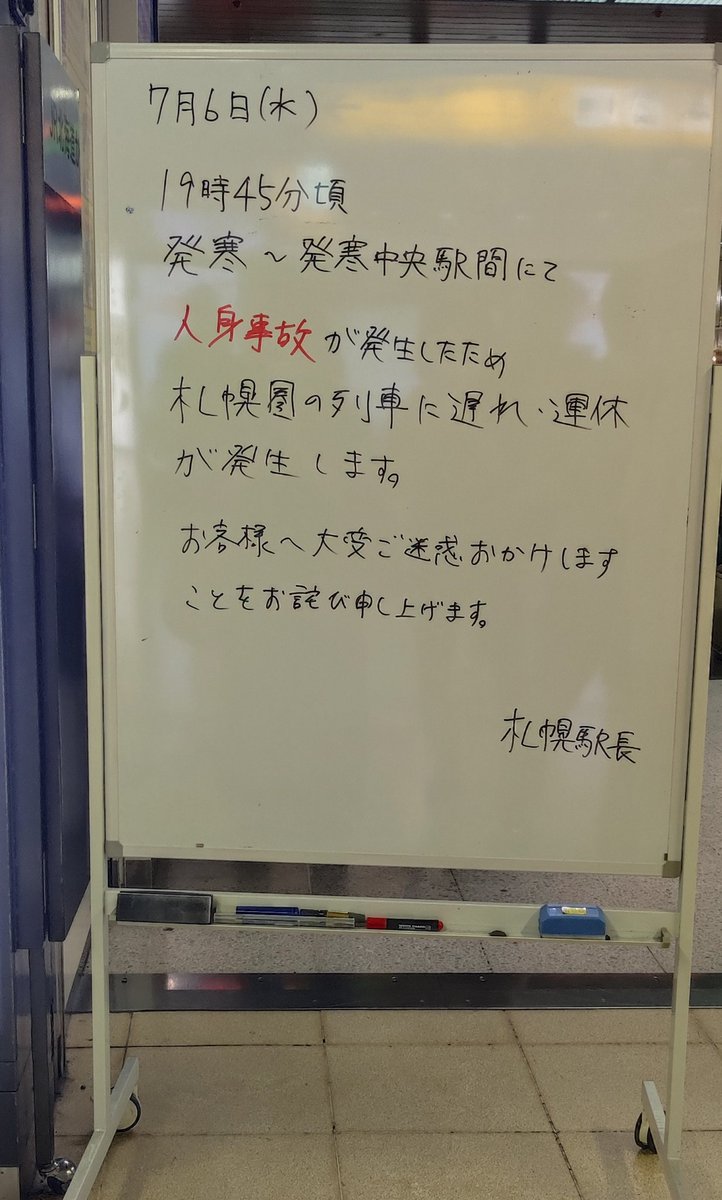 7月6日(水)
19時45分頃
発寒～発寒中央駅間にて
人身事故が発生したため
札幌圏の列車に遅れ・運休
が発生します。
お客様へ大変ご迷惑おかけします
ことをお詫び申し上げます。
札幌駅長